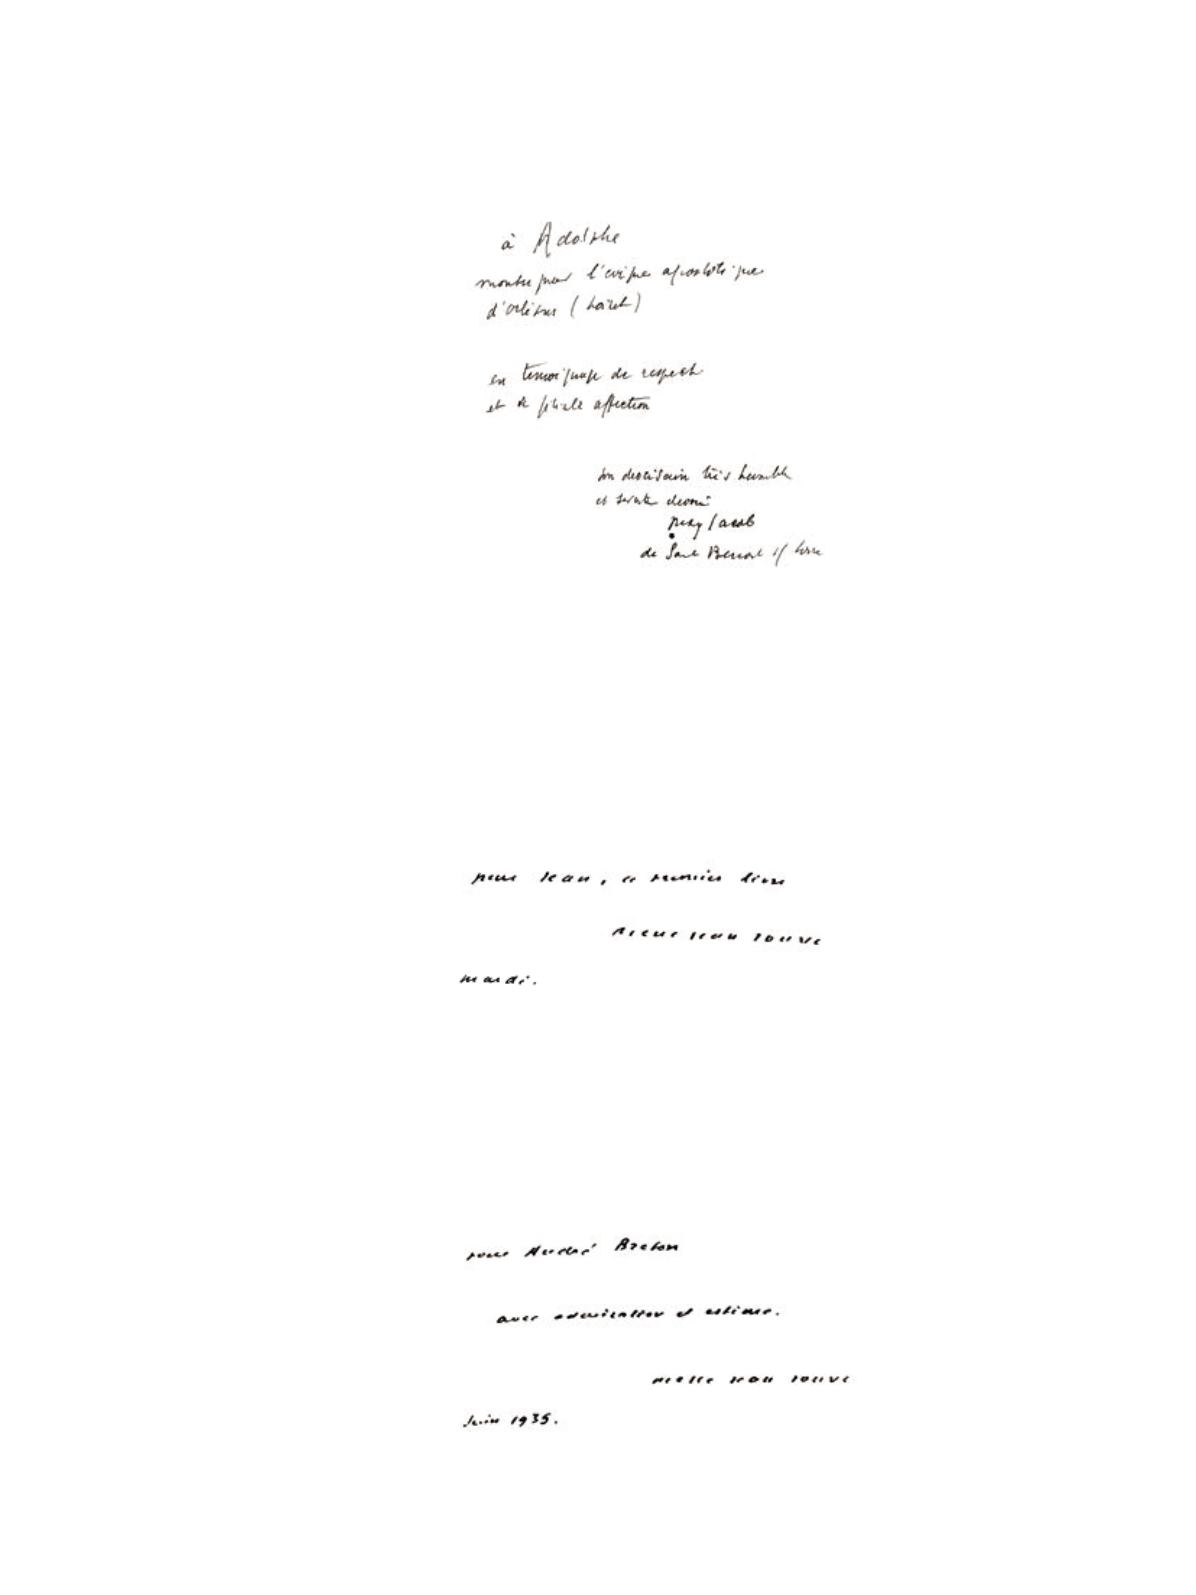 à Adolphe
monseigneur l'évêque apostolique
d'Orléans (Loiret)
en témoignage de respect
et de filiale affection
son diocésain très humble
et servite dévoué
Max Jacob
de Saint Benoit s/ Loire
pour Jean, ce premier livre
Pierre Jean Jouve
mardi.
pour André Breton
avec admiration et estime.
Pierre Jean Jouve
Juin 1935.